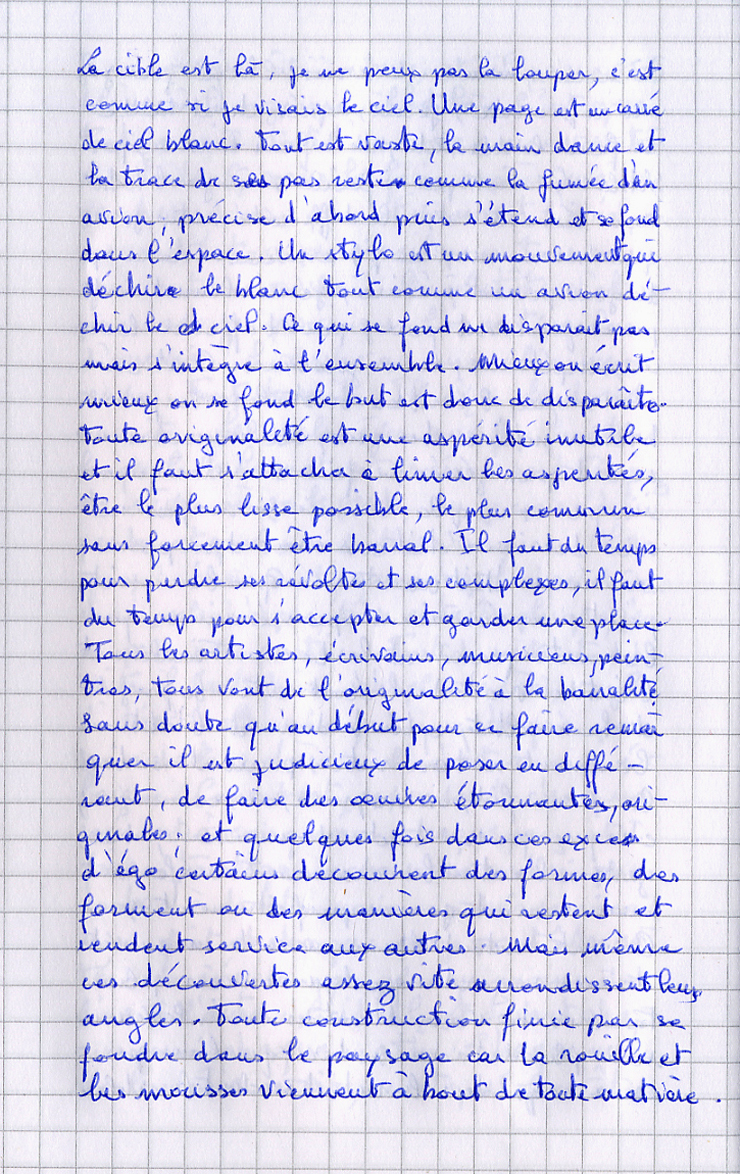 La cible est là, je ne peux pas la louper, c'est
comme si je visais le ciel. Une page est un carré
de ciel blanc. Tout est vaste, la main danse et
la trace de ses pas reste comme la fumée d'un
avion, précise d'abord puis s'étend et se fond
dans l'espace. Un stylo est un mouvement qui
déchire le blanc tout comme un avion dé-
chir le ciel. Ce qui se fond ne disparait pas
mais s'intègre à l'ensemble. Mieux on écrit
mieux on se fond le but est donc de disparaître.
Toute originaleté est une aspérité inutile
et il faut s'attacher à limer les asperités,
être le plus lisse possible, le plus commun
sans forcement être banal. Il faut du temps
pour perdre ses révoltes et ses complexes, il faut
du temps pour s'accepter et garder une place.
Tous les artistes, écrivains, musiciens, pein-
tres, tous vont de l'originalité à la banalité,
sans doute qu'au début pour se faire remar
quer il est judicieux de poser en diffé-
rent, de faire des oeuvres étonnantes, ori-
ginales; et quelques fois dans ces exces
d'égo certains découvrent des formes, des
forment ou des manières qui restent et
rendent service aux autres. Mais même
ces découvertes assez vite arrondissent leurs
angles. Toute construction finie par se
foudre dans le paysage car la rouille et
les mousses viennent à bout de toute matière.